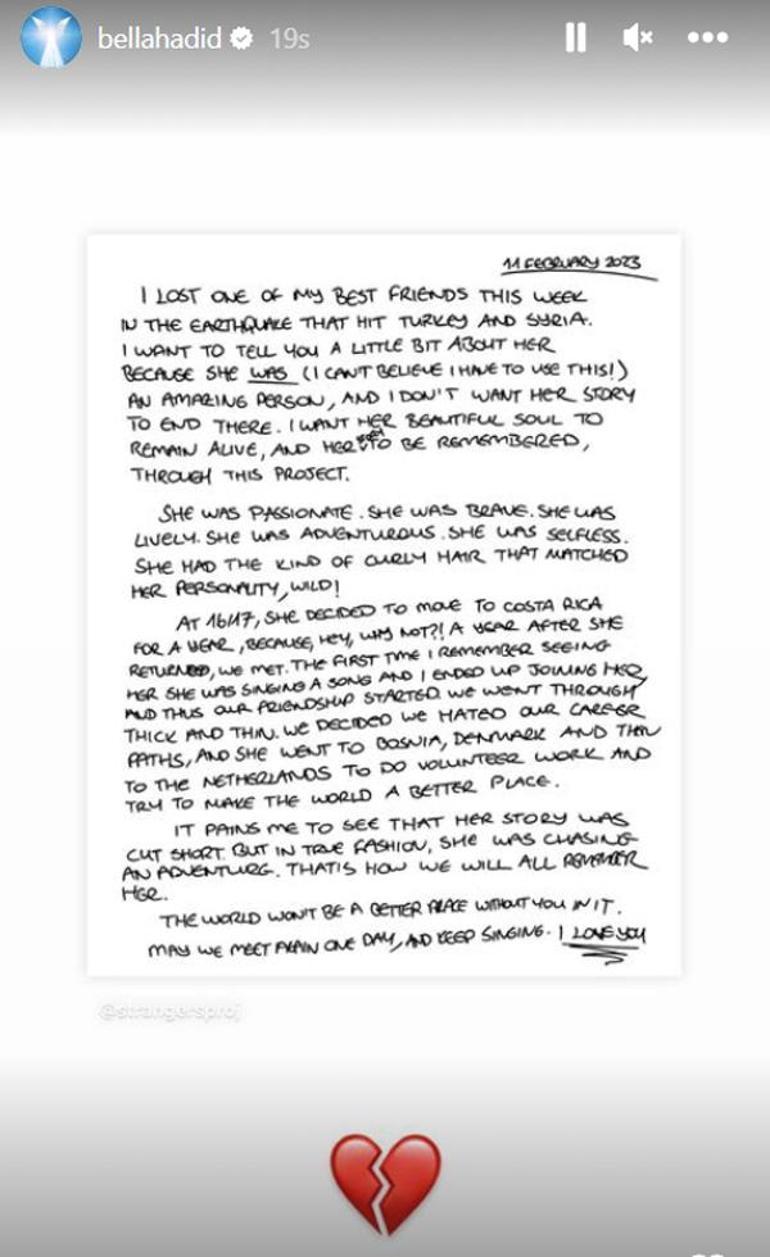 bellahadid 19s
11 FEBRUARY 2023
I LOST ONE OF MY BEST FRIENDS THIS WEEK
IN THE EARTHQUAKE THAT HIT TURKEY AND SYRIA.
I WANT TO TELL YOU A LITTLE BIT ABOUT HER
BECAUSE SHE WAS (I CAN'T BELIEVE I HAVE TO USE THIS!)
AN AMAZING PERSON, AND I DON'T WANT HER STORY
TO END THERE. I WANT HER BEAUTIFUL SOUL TO
REMAIN ALIVE, AND HER STORY TO BE REMEMBERED,
THROUGH THIS PROJECT.
SHE WAS PASSIONATE. SHE WAS BRAVE. SHE WAS
LIVELY. SHE WAS ADVENTUROUS. SHE WAS SELFLESS.
SHE HAD THE KIND OF CURLY HAIR THAT MATCHED
HER PERSONALITY, WILD!
AT 16/17, SHE DECIDED TO MOVE TO COSTA RICA
FOR A YEAR, BECAUSE, HEY, WHY NOT?! A YEAR AFTER SHE
RETURNED, WE MET. THE FIRST TIME I REMEMBER SEEING
HER SHE WAS SINGING A SONG AND I ENDED UP JOINING HER,
AND THUS OUR FRIENDSHIP STARTED. WE WENT THROUGH
THICK AND THIN. WE DECIDED WE HATED OUR CAREER
PATHS, AND SHE WENT TO BOSNIA, DENMARK AND THEN
TO THE NETHERLANDS TO DO VOLUNTEER WORK AND
TRY TO MAKE THE WORLD A BETTER PLACE.
IT PAINS ME TO SEE THAT HER STORY WAS
CUT SHORT. BUT IN TRUE FASHION, SHE WAS CHASING
AN ADVENTURE. THAT'S HOW WE WILL ALL REMEMBER
HER.
THE WORLD WON'T BE A BETTER PLACE WITHOUT YOU IN IT.
MAY WE MEET AGAIN ONE DAY, AND KEEP SINGING. I LOVE YOU
@strangersproj